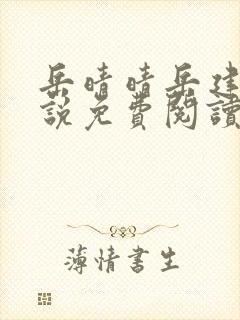 岳晴晴岳建
說免費閱讀
薄情書生